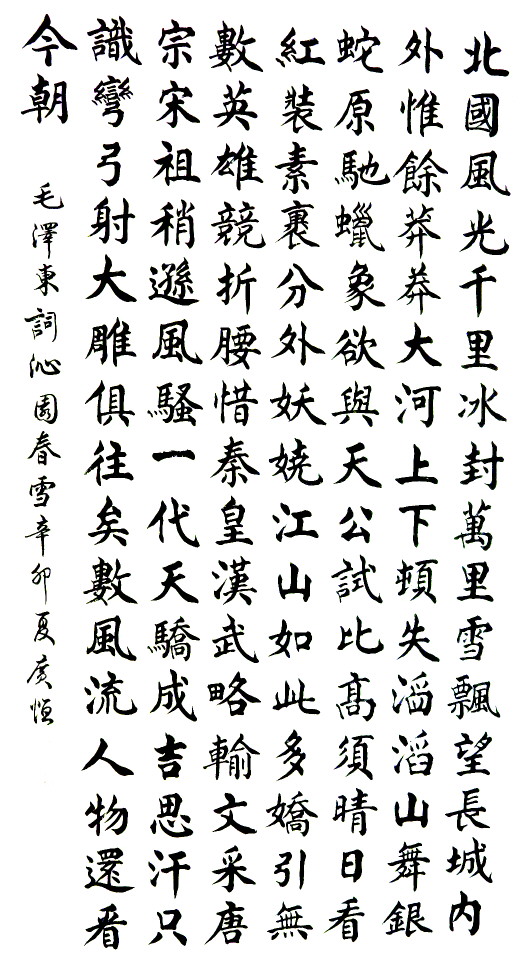 北國風光千里冰封萬里雪飄望長城内
外惟餘莽莽大河上下頓失滔滔山舞銀
蛇原馳蠟象欲與天公試比高須晴日看
紅裝素裹分外妖嬈江山如此多嬌引無
數英雄競折腰惜秦皇漢武略輸文采唐
宗宋祖稍遜風騷一代天驕成吉思汗只
識彎弓射大雕俱往矣數風流人物還看
今朝
毛澤東詞沁園春雪辛卯夏廣恒